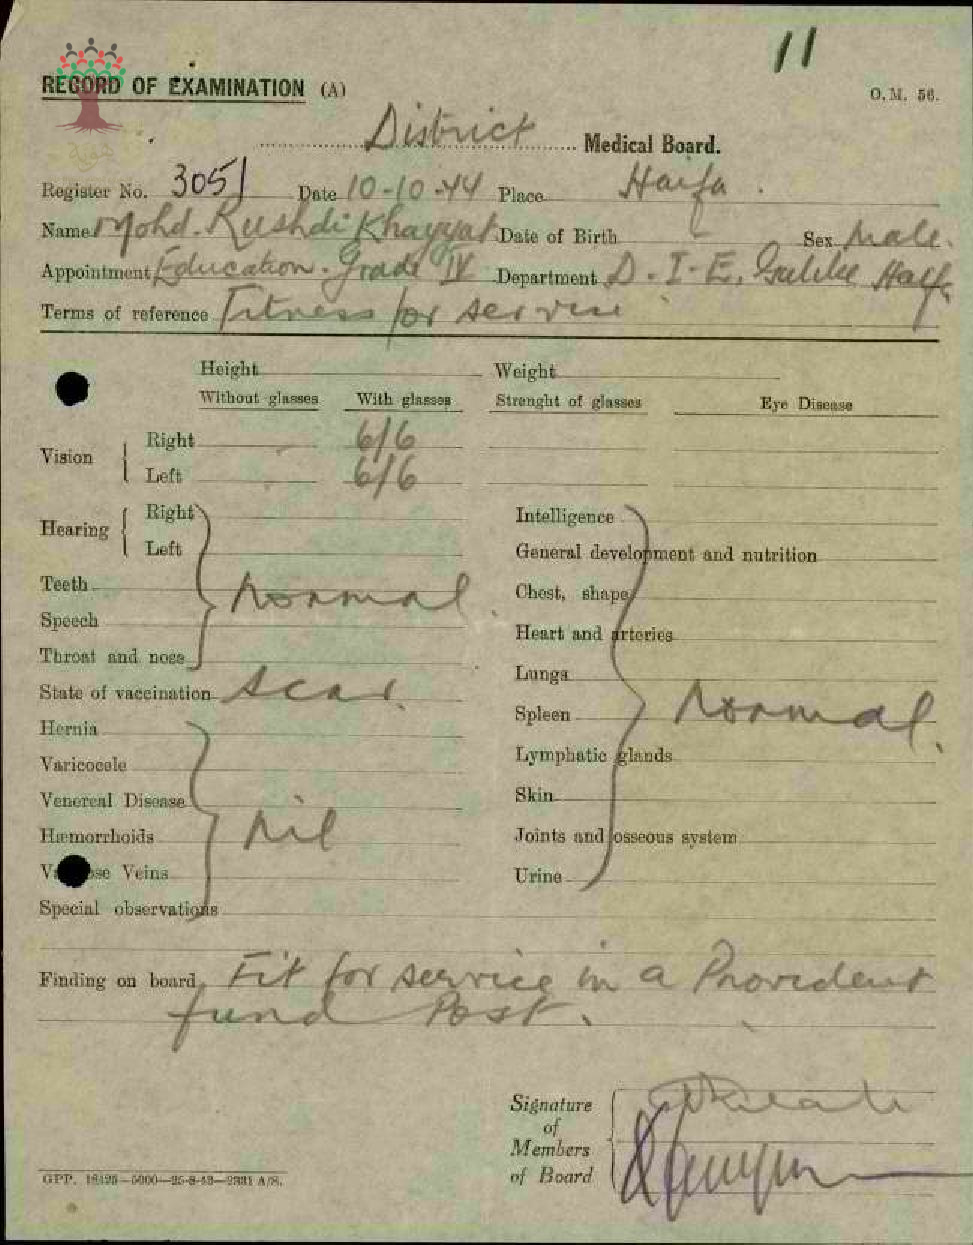 11
RECORD OF EXAMINATION (A)
O.M. 56.
District Medical Board.
Register No. 3051 Date 10-10-44 Place Haifa.
Name Mohd. Rushdi Khayyat Date of Birth Sex Male.
Appointment Education. Grade IV Department D.I.E. Galilee Haifa
Terms of reference Fitness for service
Height Weight
Without glasses With glasses Strenght of glasses Eye Disease
Vision Right 6/6
Left 6/6
Hearing Right
Left
Teeth
Speech
Throat and nose
Normal.
State of vaccination Scar.
Hernia
Varicocele
Venereal Disease
Hæmorrhoids
Veins
Nil
Special observations
Intelligence
General development and nutrition
Chest, shape
Heart and arteries
Lungs
Spleen
Lymphatic glands
Skin
Joints and osseous system
Urine
Normal.
Finding on board Fit for service in a Provident
fund Post.
Signature
of
Members
of Board
GPP. 18125—5000—25-8-43—2331 A/S.